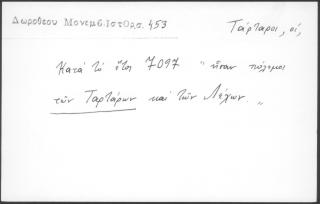 Δωροθεου Μονεμβ.Ιστορσ. 453
Τάρταροι, οἱ,
Κατὰ τὸ ἔτος 7097 " ἦσαν πόλεμοι
τῶν Ταρτάρων καὶ τῶν Λέχων. "